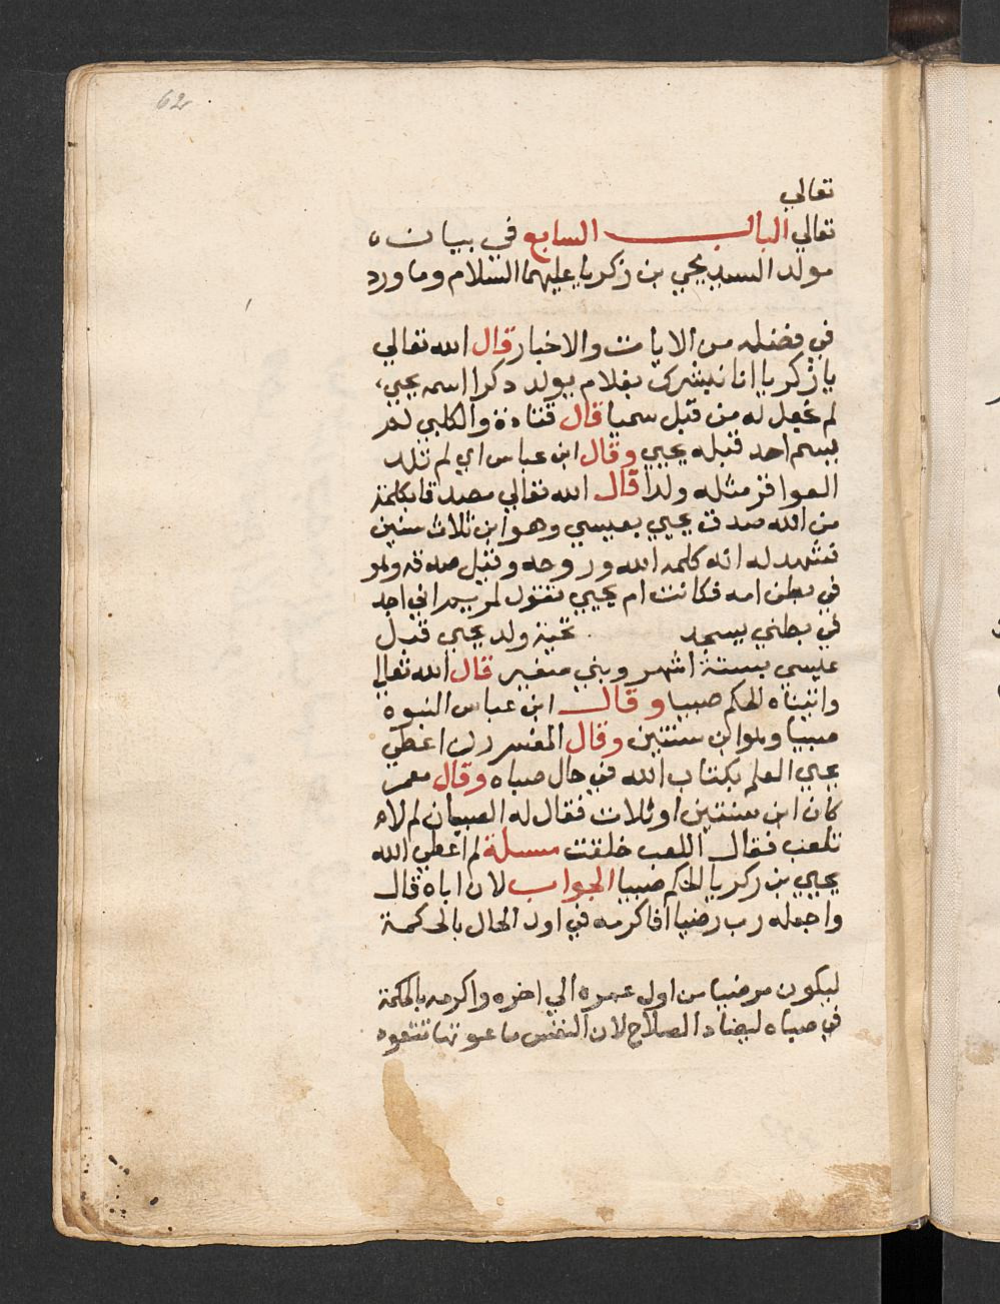 62
تعالي
تعالي الباب السابع في بيان ه
مولد السيد يحي بن زكريا عليهما السلام وما ورد
في فضله من الايات والاخبار قال الله تعالي
يا زكريا انا نبشرك بغلام يولد دكرا اسمه يحيي
لم نجعل له من قبل سميا قال قتادة والكلبي لم
يسم احد قبله يحيي وقال ابن عباس اي لم تلد
العواقر مثله ولدا قال الله تعالي مصدقا بكلمة
من الله صدق يحيي بعيسي وهو ابن ثلاث سنين
فشهد له انه كلمه الله وروحه وقيل صدقه وهو
في بطن امه فكانت ام يحيي تقول لمريم اني اجد
في بطني يسجد تحية ولد يحيي قبل
عليسي بستة اشهر وبني صغير قال الله تعالي
واتيناه الحكم صبيا وقال ابن عباس النبوه
صبيا وهو ابن سنتين وقال المفسرون اعطي
يحيي العلم بكتاب الله في حال صباه وقال معمر
كان ابن سنتين او ثلاث فقال له الصبيان لم لا
تلعب فقال اللعب خلقت مسلة لم اعطي الله
يحيي بن زكريا الحكم صبيا الجواب لان اباه قال
واجعله رب رضيا فاكرمه في اول الحال بالحكمة
ليكون مرضيا من اول عمره الي اخره واكرمه بالحكمة
في صباه ليعتاد الصلاح لان النفس ما عودتها تتعوه